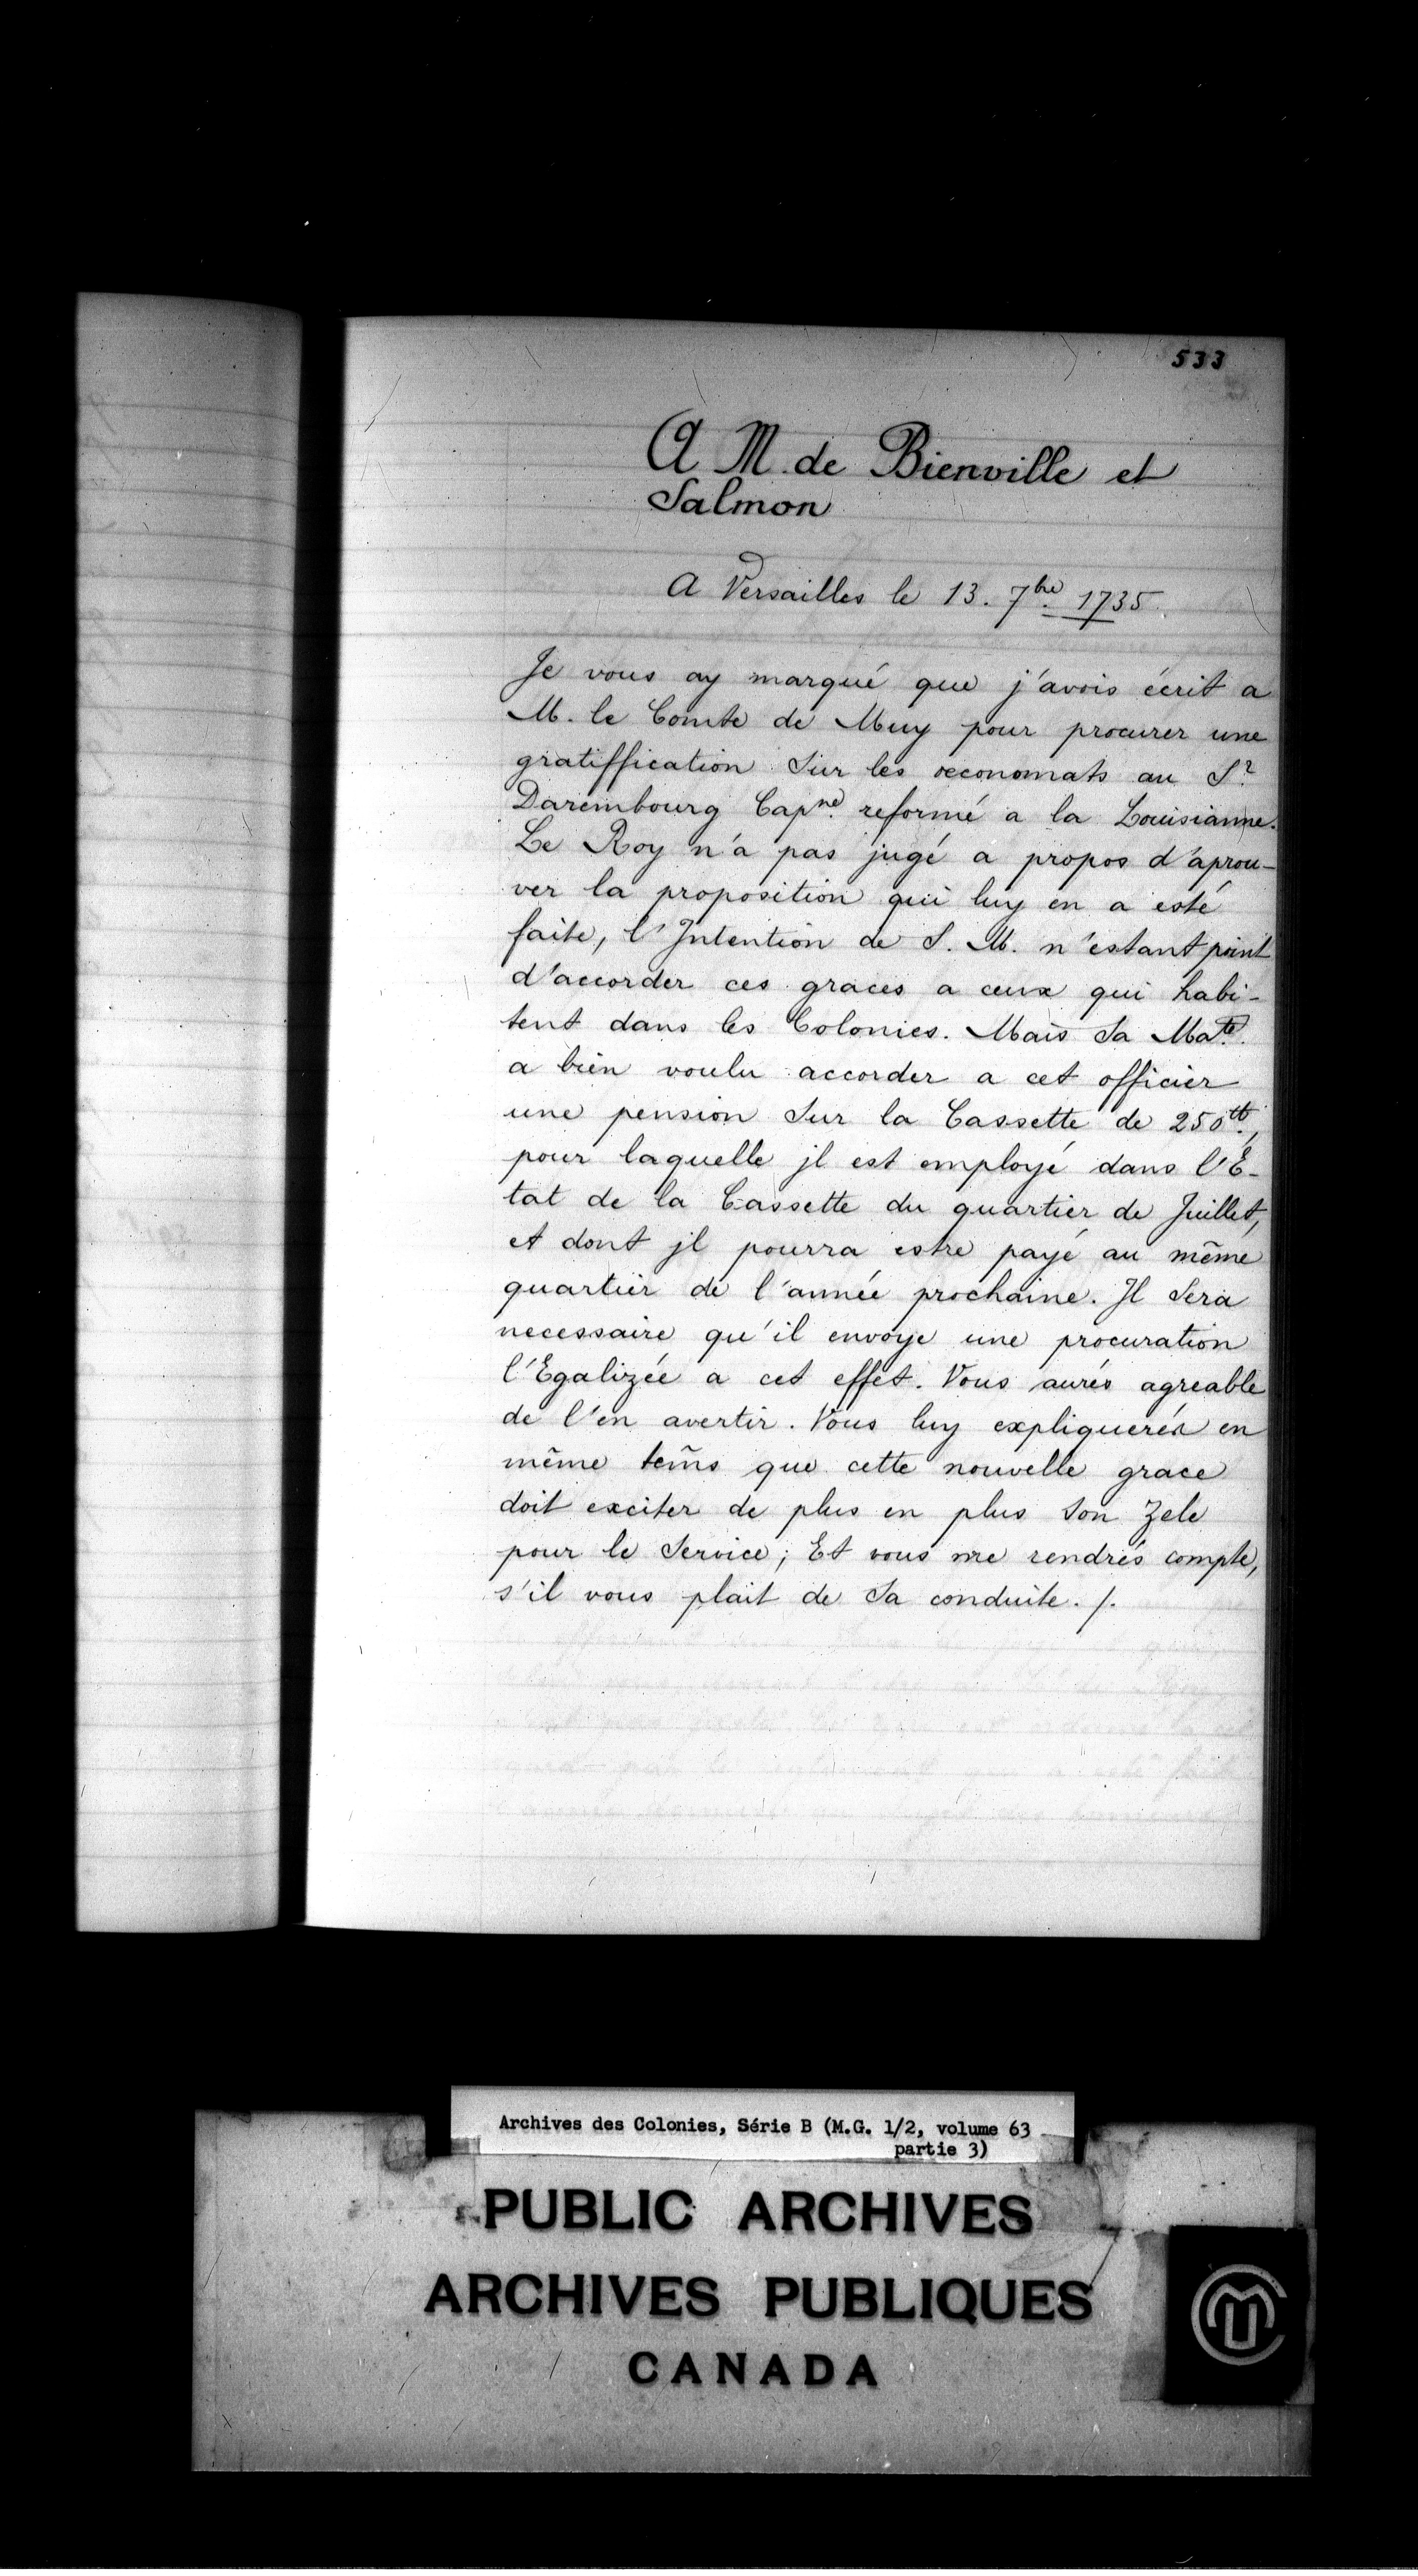 533
A M. de Bienville et
Salmon
A Versailles le 13. 7bre. 1735.
Je vous ay marqué que j'avois écrit a
M. le Comte de Muy pour procurer une
gratiffication Sur les œconomats au Sr.
Darembourg Capne. reformé a la Louisianne.
Le Roy n'a pas jugé a propos d'aprou-
ver la proposition qui luy en a esté
faite, l'Intention de S. M. n'estant point
d'accorder ces graces a ceux qui habi-
tent dans les Colonies. Mais Sa Maté.
a bien voulu accorder a cet officier
une pension Sur la Cassette de 250tt.,
pour laquelle jl est employé dans l'E-
tat de la Cassette du quartier de Juillet,
et dont jl pourra estre payé au même
quartier de l'année prochaine. Il Sera
necessaire qu'il envoye une procuration
l'Egalizée a cet effet. Vous aurés agreable
de l'en avertir. Vous luy expliquerés en
même tem̃s que cette nouvelle grace
doit exciter de plus en plus Son Zele
pour le Service; Et vous me rendrés compte,
s'il vous plait de Sa conduite. /.
Archives des Colonies, Série B (M.G. 1/2, volume 63
partie 3)
PUBLIC ARCHIVES
ARCHIVES PUBLIQUES
CANADA